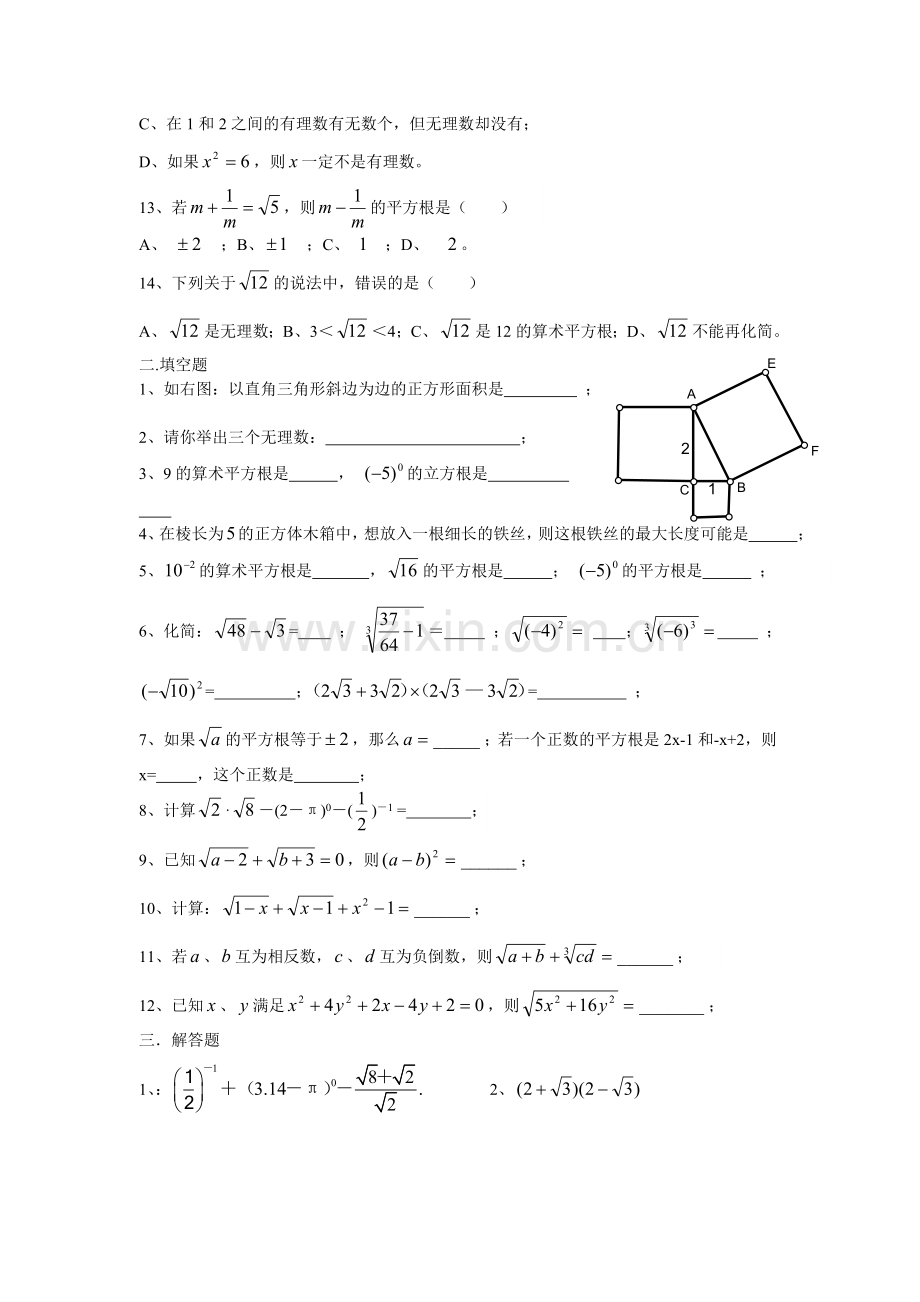 C、在 1 和 2 之间的有理数有无数个，但无理数却没有；
D、如果 x² = 6，则 x 一定不是有理数。
13、若 m + 1/m = √5，则 m − 1/m 的平方根是（　　）
A、 ±2 ；B、±1 ；C、 1 ；D、 2 。
14、下列关于 √12 的说法中，错误的是（　　）
A、√12 是无理数；B、3＜√12＜4；C、√12 是 12 的算术平方根；D、√12 不能再化简。
二.填空题
1、如右图：以直角三角形斜边为边的正方形面积是_________ ；
2、请你举出三个无理数：________________________；
3、9 的算术平方根是______， (−5)⁰ 的立方根是__________
____
E
A
2
F
C 1 B
4、在棱长为 5 的正方体木箱中，想放入一根细长的铁丝，则这根铁丝的最大长度可能是______；
5、10⁻² 的算术平方根是_______，√16 的平方根是______； (−5)⁰ 的平方根是______ ；
6、化简：√48 − √3 =____ ；∛(37/64 − 1) ＝_____ ；√(−4)² = ____；∛(−6)³ = _____ ；
(−√10)² =__________；（2√3 + 3√2）×（2√3 — 3√2）=___________ ；
7、如果 √a 的平方根等于 ±2，那么 a = ______；若一个正数的平方根是 2x-1 和-x+2，则
x=_____，这个正数是________；
8、计算 √2 · √8 －(2－π)⁰－(1/2)⁻¹ =________；
9、已知 √(a−2) + √(b+3) = 0，则 (a − b)² = _______；
10、计算：√(1−x) + √(x−1) + x² − 1 = _______；
11、若 a 、b 互为相反数，c 、d 互为负倒数，则 √(a+b) + ∛cd = _______；
12、已知 x 、y 满足 x² + 4y² + 2x − 4y + 2 = 0，则 √(5x² + 16y²) = ________；
三．解答题
1、：(1/2)⁻¹ ＋（3.14－π）⁰－(√8＋√2)/√2 . 2、(2 + √3)(2 − √3)
www.zixin.com.cn